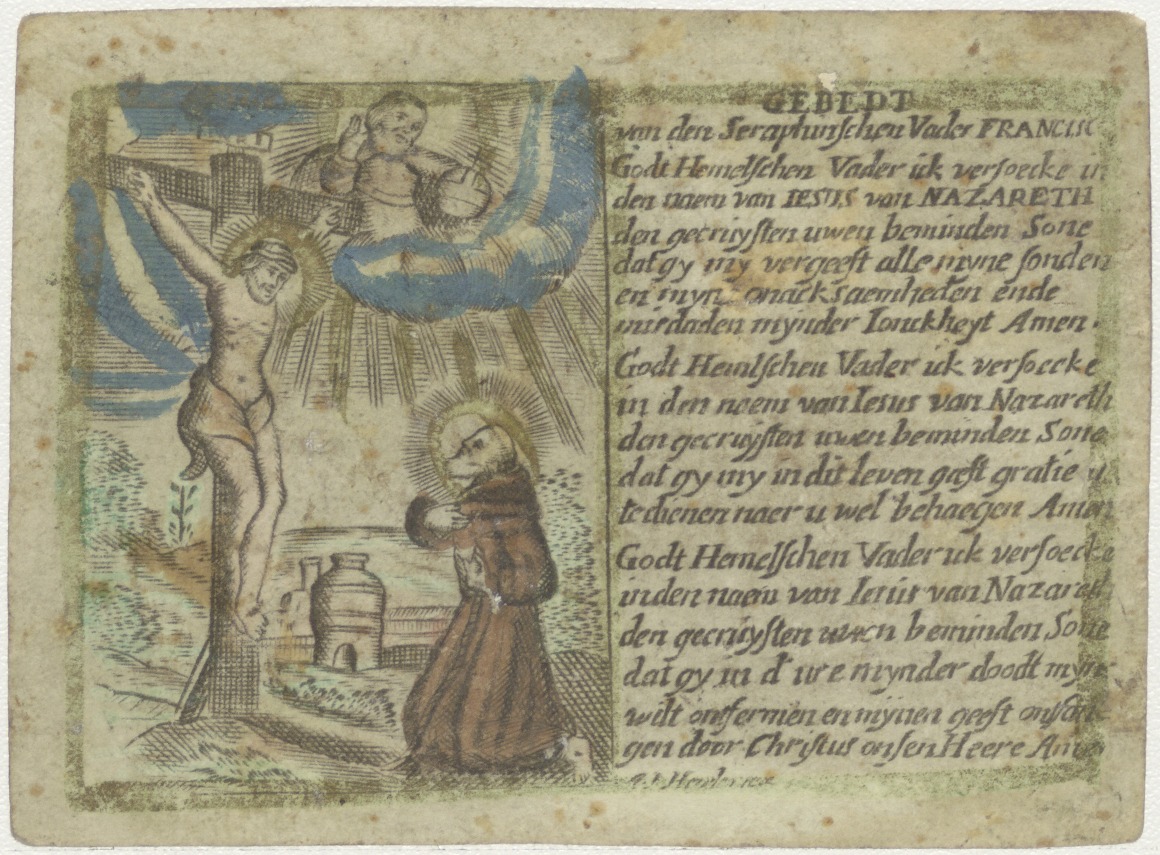 GEBEDT
van den Seraphinschen Vader FRANCISC
Godt Hemelschen Vader ick versoecke in
den naem van IESUS van NAZARETH
den gecruysten uwen beminden Sone
dat gy my vergeeft alle myne sonden
en myn onacksaemheden ende
misdaden mynder Ionckheyt Amen.
Godt Hemlschen Vader ick versoecke
in den naem van Iesus van Nazareth
den gecruysten uwen beminden Sone
dat gy my in dit leven geeft gratie u
te dienen naer u wel behaegen Amen
Godt Hemelschen Vader ick versoecke
in den naem van Iesus van Nazareth
den gecruysten uwen beminden Sone
dat gy in d' ure mynder doodt myns
wilt ontfermen en mynen geest ontfan
gen door Christus onsen Heere Amen